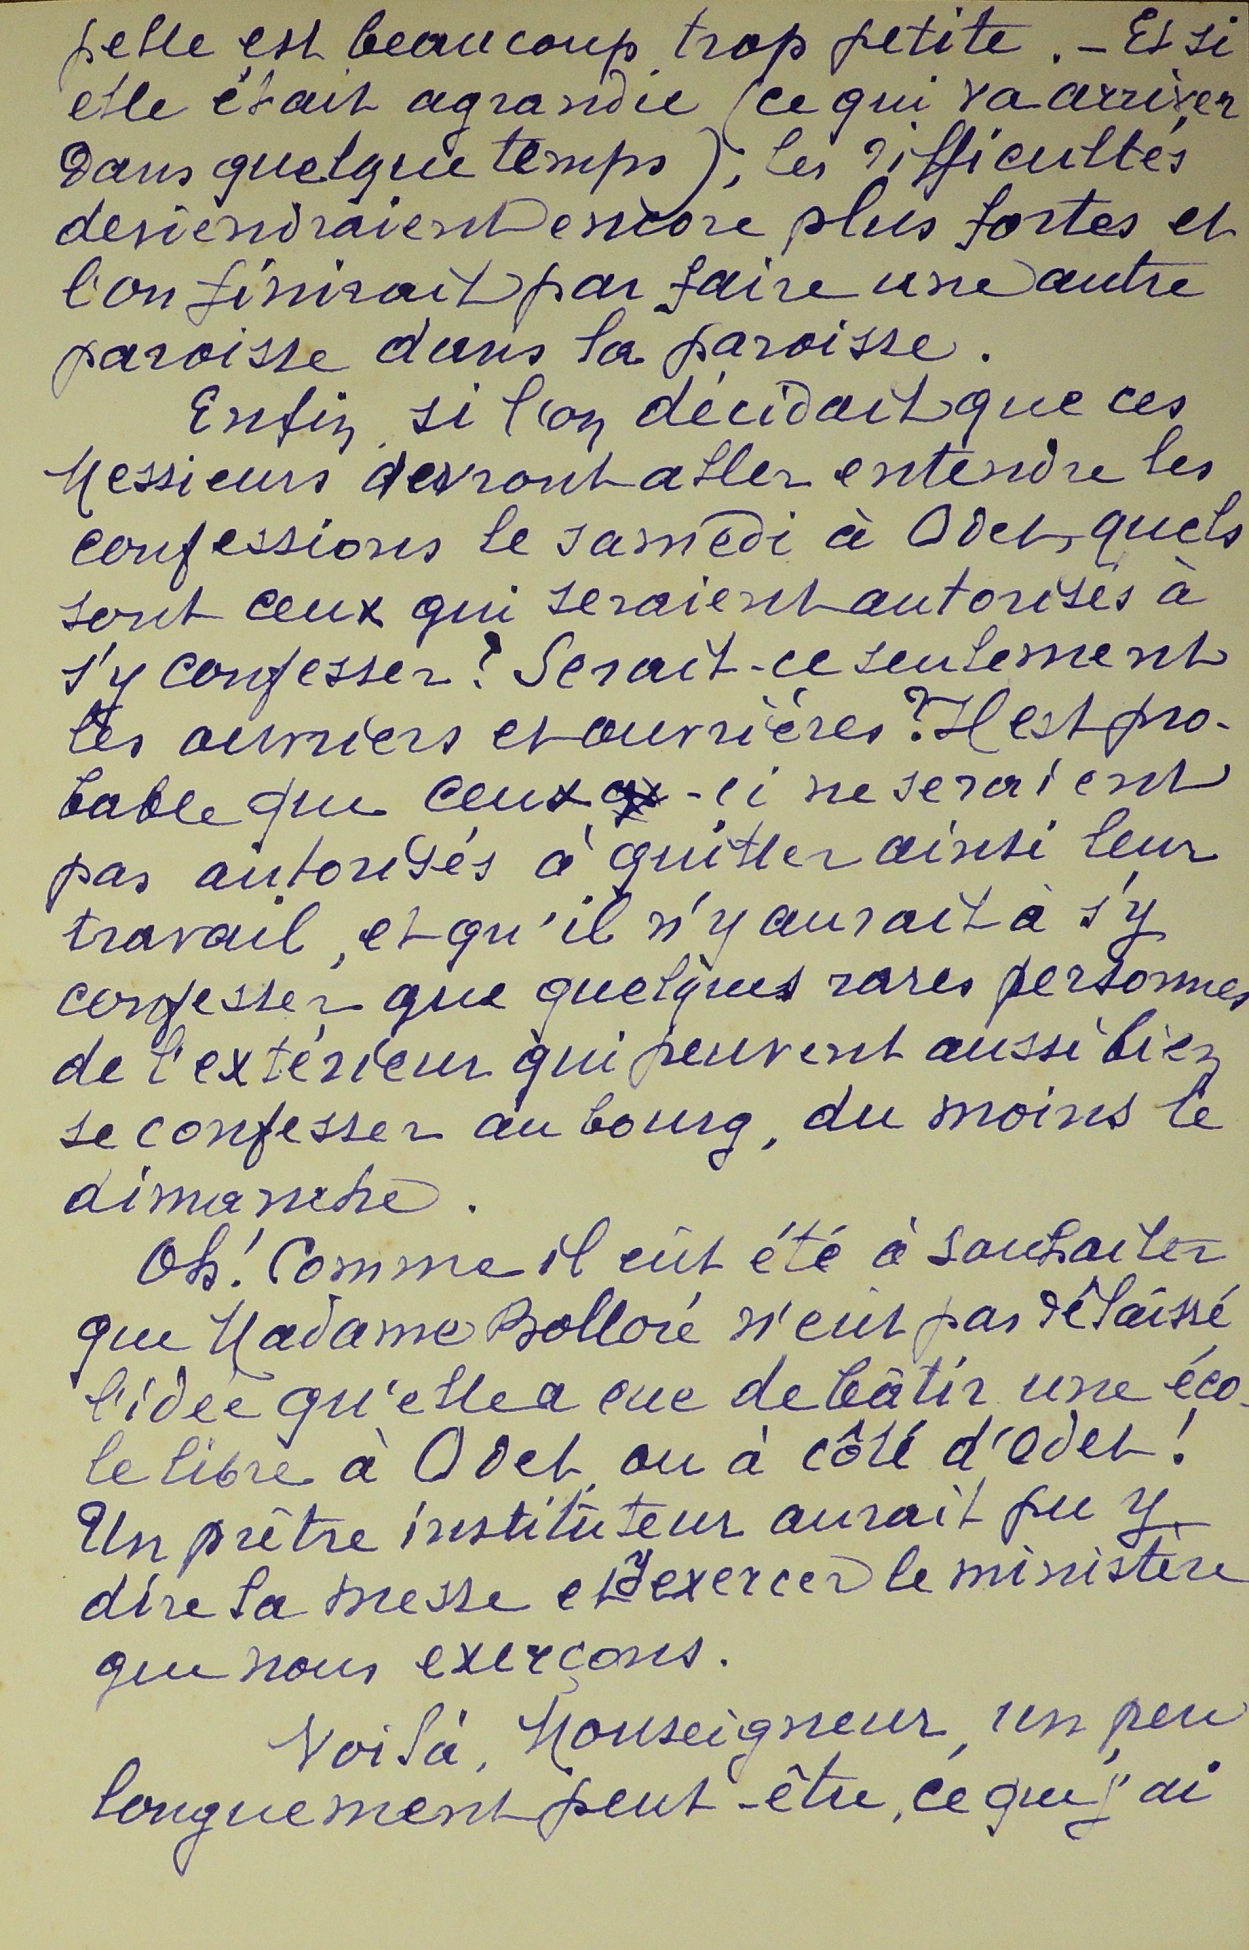 pelle est beaucoup trop petite. – Et si
elle était agrandie (ce qui va arriver
dans quelque temps), les difficultés
deviendraient encore plus fortes et
l'on finirait par faire une autre
paroisse dans la paroisse.
Enfin, si l'on décidait que ces
Messieurs devront aller entendre les
confessions le samedi à Odet, quels
sont ceux qui seraient autorisés à
s'y confesser? Serait-ce seulement
les ouvriers et ouvrières? Il est pro-
bable que ceux-ci ne seraient
pas autorisés à quitter ainsi leur
travail, et qu'il n'y aurait à s'y
confesser que quelques rares personnes
de l'extérieur qui peuvent aussi bien
se confesser au bourg, du moins le
dimanche.
Oh! Comme il eût été à souhaiter
que Madame Bolloré n'eut pas délaissé
l'idée qu'elle a eue de bâtir une éco-
le libre à Odet, ou à côté d'Odet!
Un prêtre instituteur aurait pu y
dire la messe et y exercer le ministère
que nous exerçons.
Voilà, Monseigneur, un peu
longuement peut-être, ce que j'ai